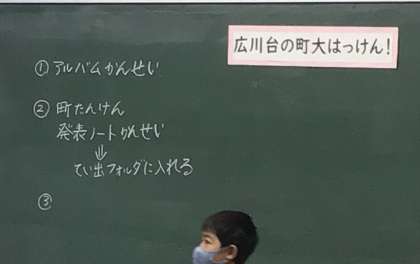 広川台の町大はっけん!
①アルバムかんせい
②町たんけん
発表ノートかんせい
⇓
てい出フォルダに入れる
③